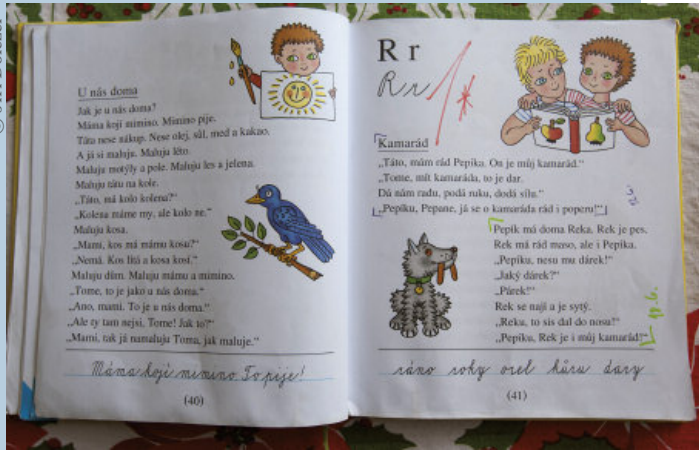 U nás doma
Jak je u nás doma?
Máma kojí mimino. Mimino pije.
Táta nese nákup. Nese olej, sůl, med a kakao.
A já si maluju. Maluju léto.
Maluju motýly a pole. Maluju les a jelena.
Maluju tátu na kole.
„Táto, má kolo kolena?“
„Kolena máme my, ale kolo ne.“
Maluju kosa.
„Mami, kos má mámu kosu?“
„Nemá. Kos lítá a kosa kosí.“
Maluju dům. Maluju mámu a mimino.
„Tome, to je jako u nás doma.“
„Ano, mami. To je u nás doma.“
„Ale ty tam nejsi, Tome! Jak to?“
„Mami, tak já namaluju Toma, jak maluje.“
Máma kojí mimino. To pije!
(40)
R r
R r 1*
Kamarád
„Táto, mám rád Pepíka. On je můj kamarád.“
„Tome, mít kamaráda, to je dar.
Dá nám radu, podá ruku, dodá sílu.“
„Pepíku, Pepane, já se o kamaráda rád i poperu!“
Pepík má doma Reka. Rek je pes.
Rek má rád maso, ale i Pepíka.
„Pepíku, nesu mu dárek!“
„Jaký dárek?“
„Párek!“
Rek se nají a je sytý.
„Reku, to sis dal do nosu!“
„Pepíku, Rek je i můj kamarád!“
ráno roky orel kůru dary
(41)